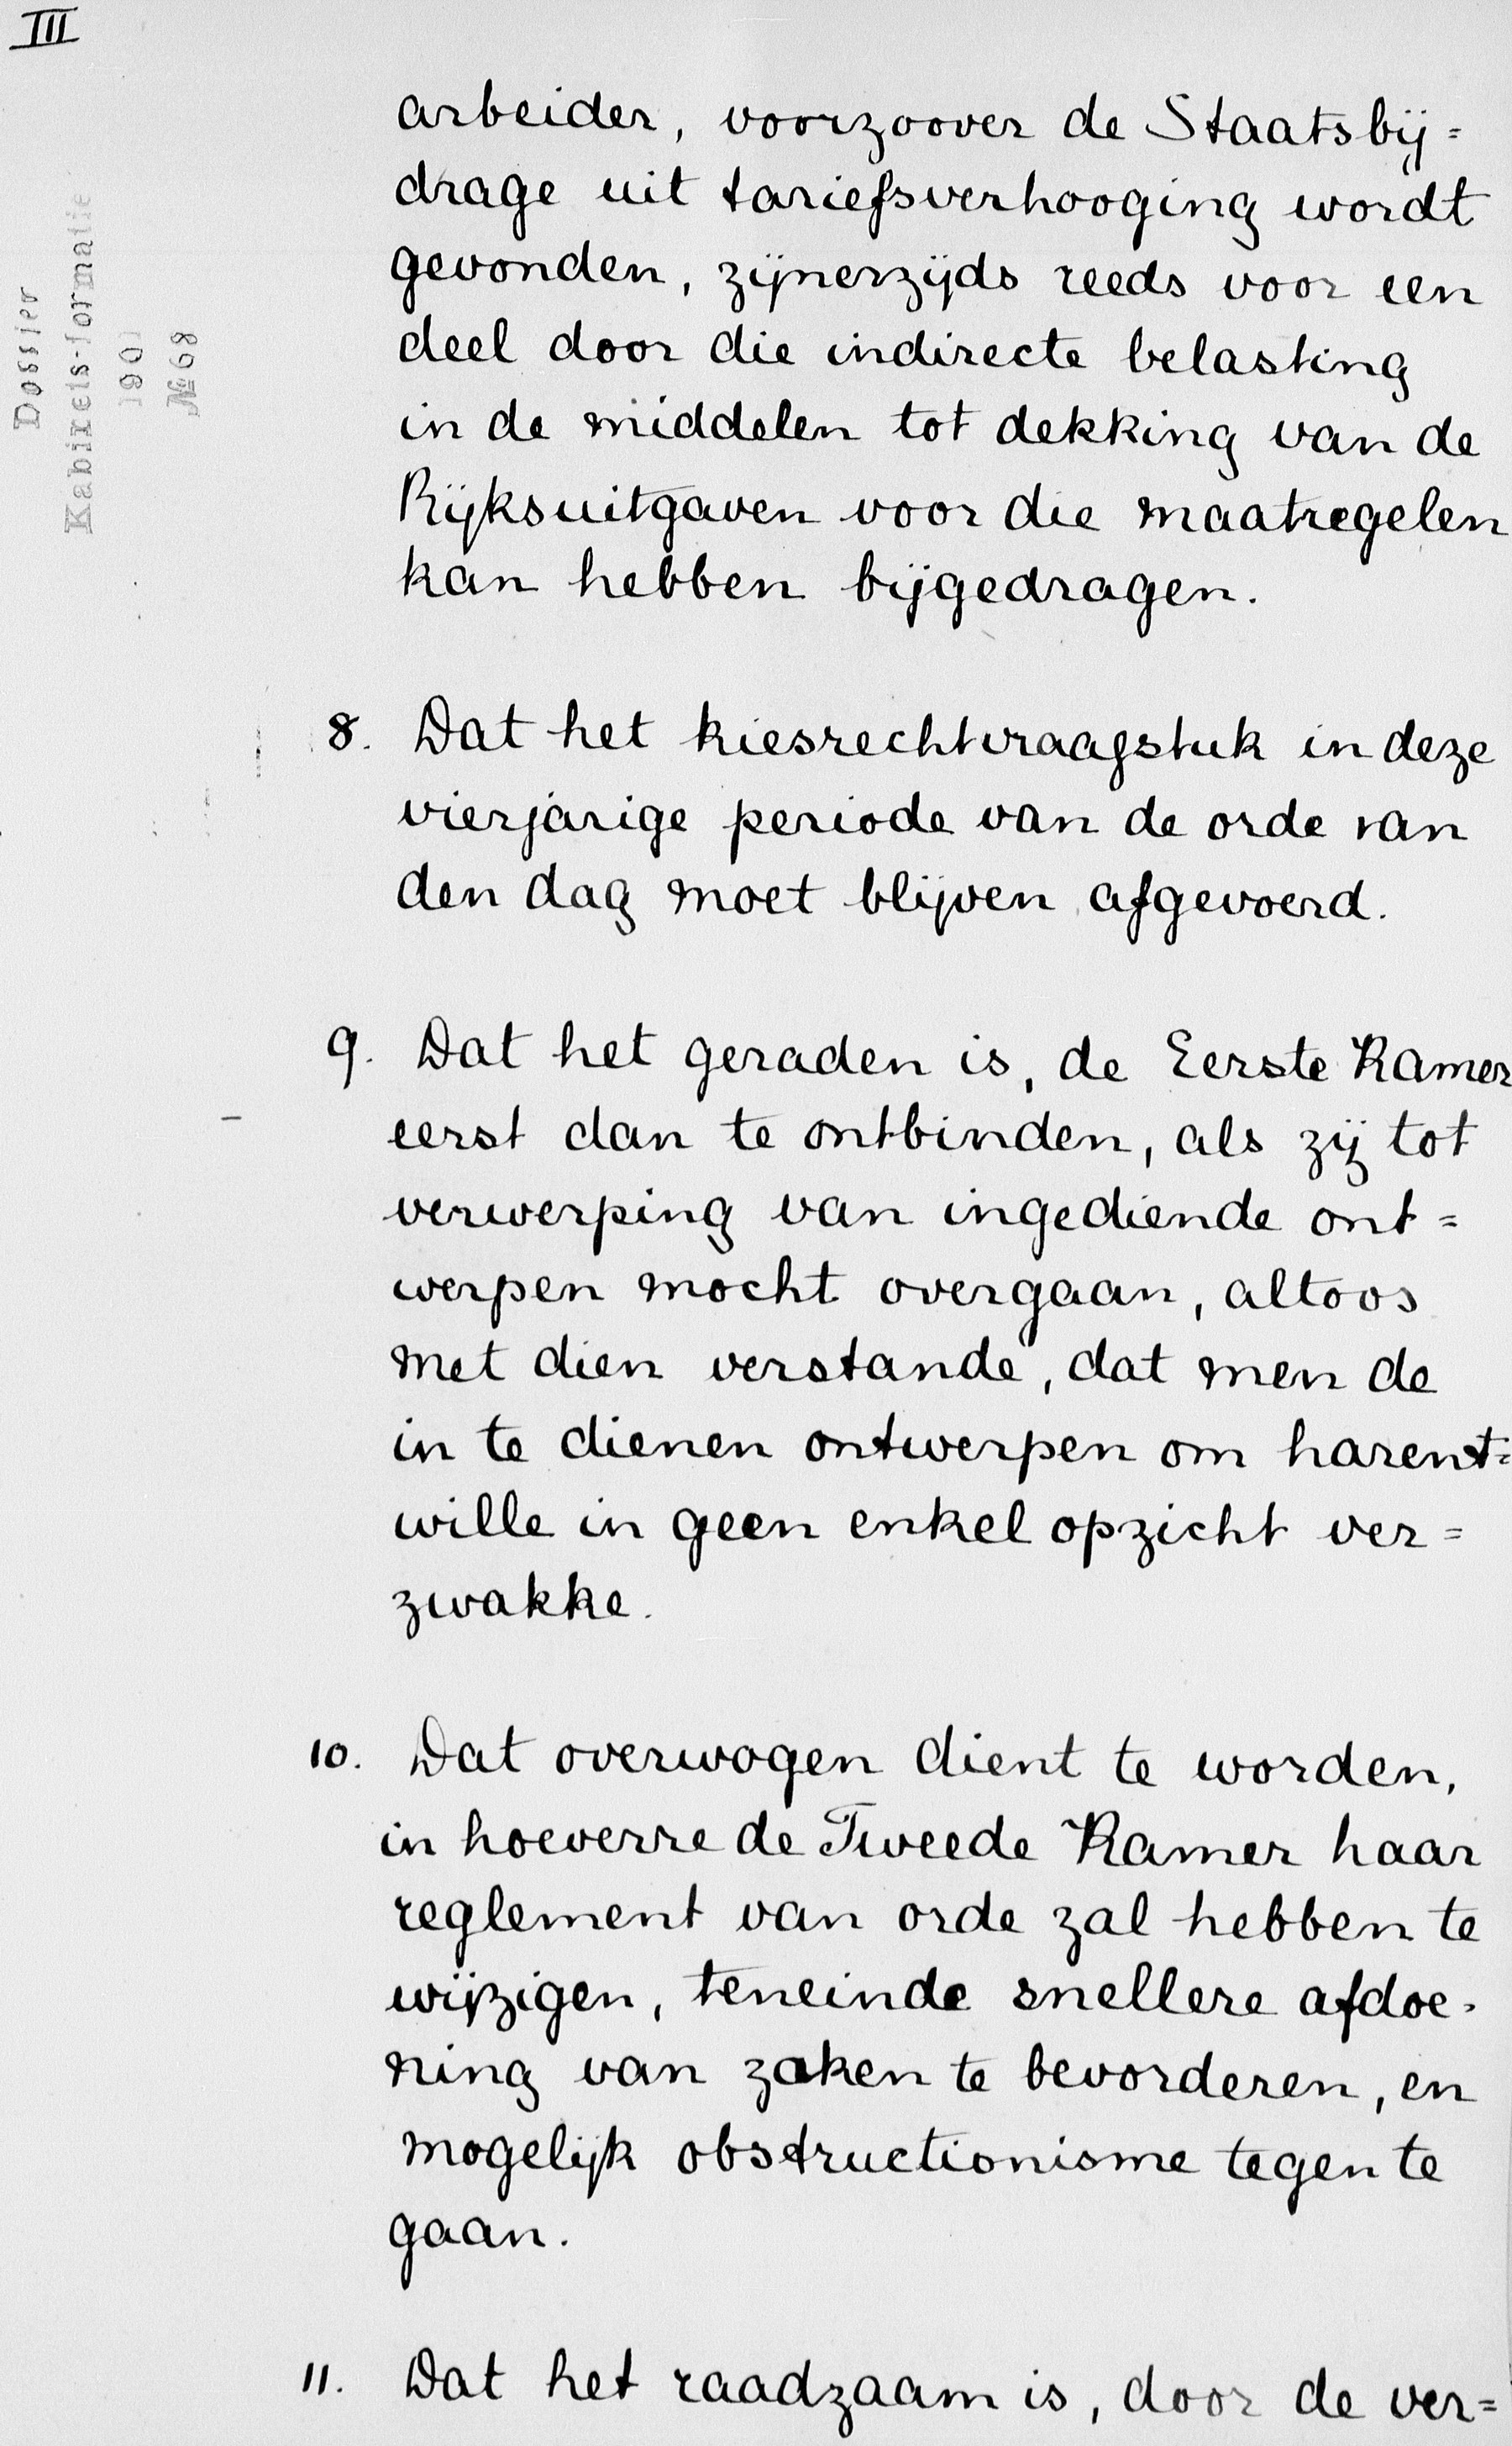 III
Dossier
Kabinets-formatie
1901
№ 68
arbeider, voorzoover de Staatsbij=
drage uit tariefsverhooging wordt
gevonden, zijnerzijds reeds voor een
deel door die indirecte belasting
in de middelen tot dekking van de
Rijksuitgaven voor die maatregelen
kan hebben bijgedragen.
8. Dat het kiesrechtvraagstuk in deze
vierjarige periode van de orde van
den dag moet blijven afgevoerd.
9. Dat het geraden is, de Eerste Kamer
eerst dan te ontbinden, als zij tot
verwerping van ingediende ont=
werpen mocht overgaan, altoos
met dien verstande, dat men de
in te dienen ontwerpen om harent=
wille in geen enkel opzicht ver=
zwakke.
10. Dat overwogen dient te worden,
in hoeverre de Tweede Kamer haar
reglement van orde zal hebben te
wijzigen, teneinde snellere afdoe-
ning van zaken te bevorderen, en
mogelijk obstructionisme tegen te
gaan.
11. Dat het raadzaam is, door de ver=